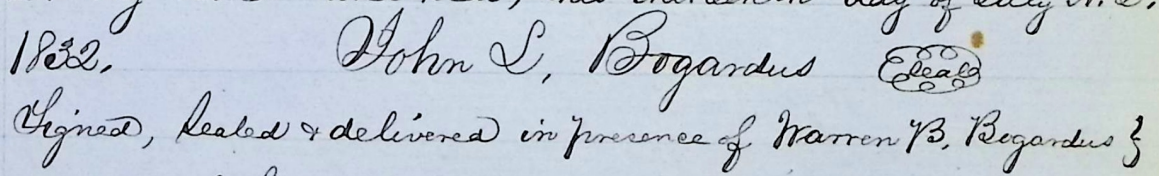 day of July A.D.
1832. John L. Bogardus Seal
Signed, Sealed & delivered in presence of Warren B. Bogardus }